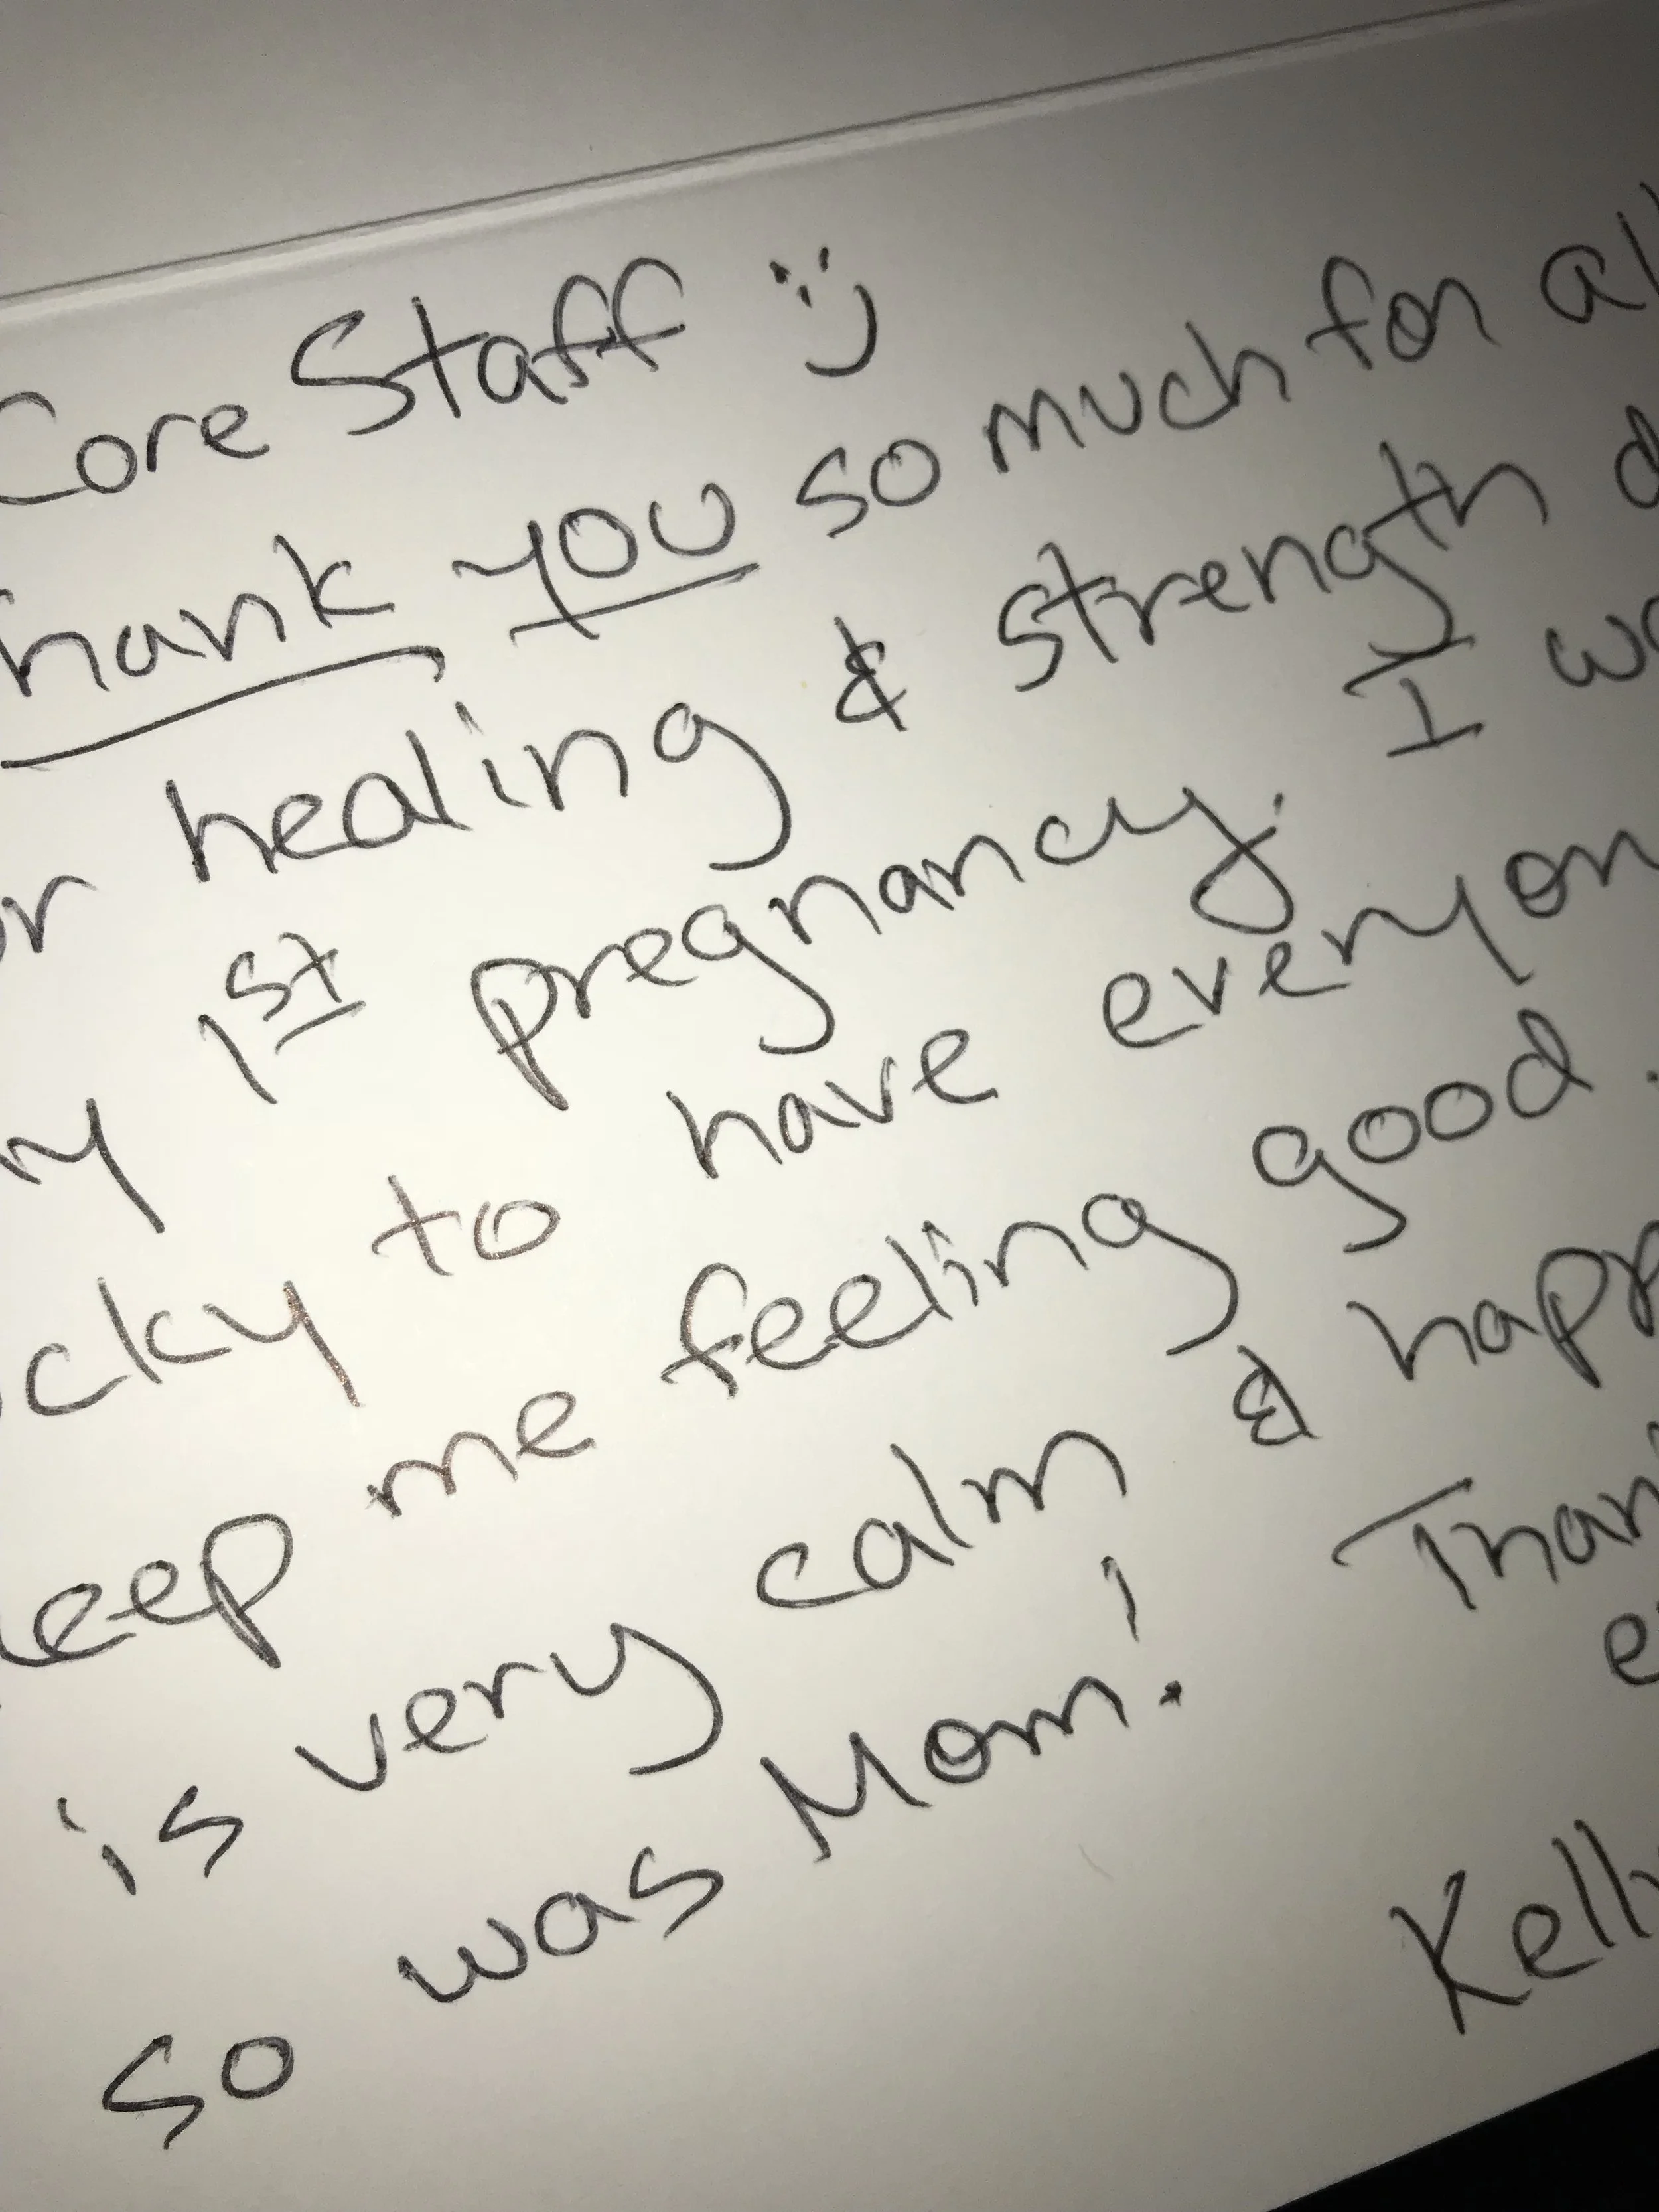 Core Staff :)
hank you so much for all
or healing & strength d
y 1st pregnancy. I wa
cky to have everyon
eep me feeling good.
is very calm & happ
so was Mom! Than
e
Kelly